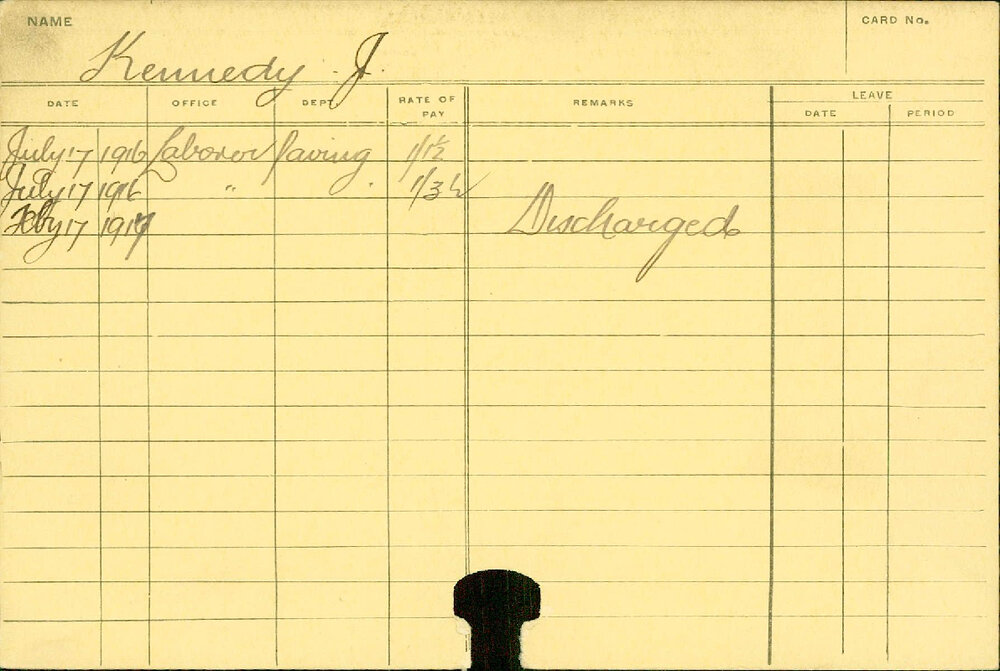 NAME
CARD No.
Kennedy J.
DATE OFFICE DEPT. RATE OF PAY REMARKS LEAVE
DATE PERIOD
July 17 1916 Laborer Paving 1/1½
July 17 1916 " " 1/3½
Feby 17 1917 Discharged